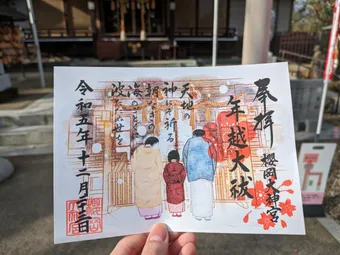 奉拝
櫻岡大神宮
年越大祓
天地の
神にぞ祈る
朝なぎの
海のごとくに
波たゝぬ世を
令和五年十二月三十一日